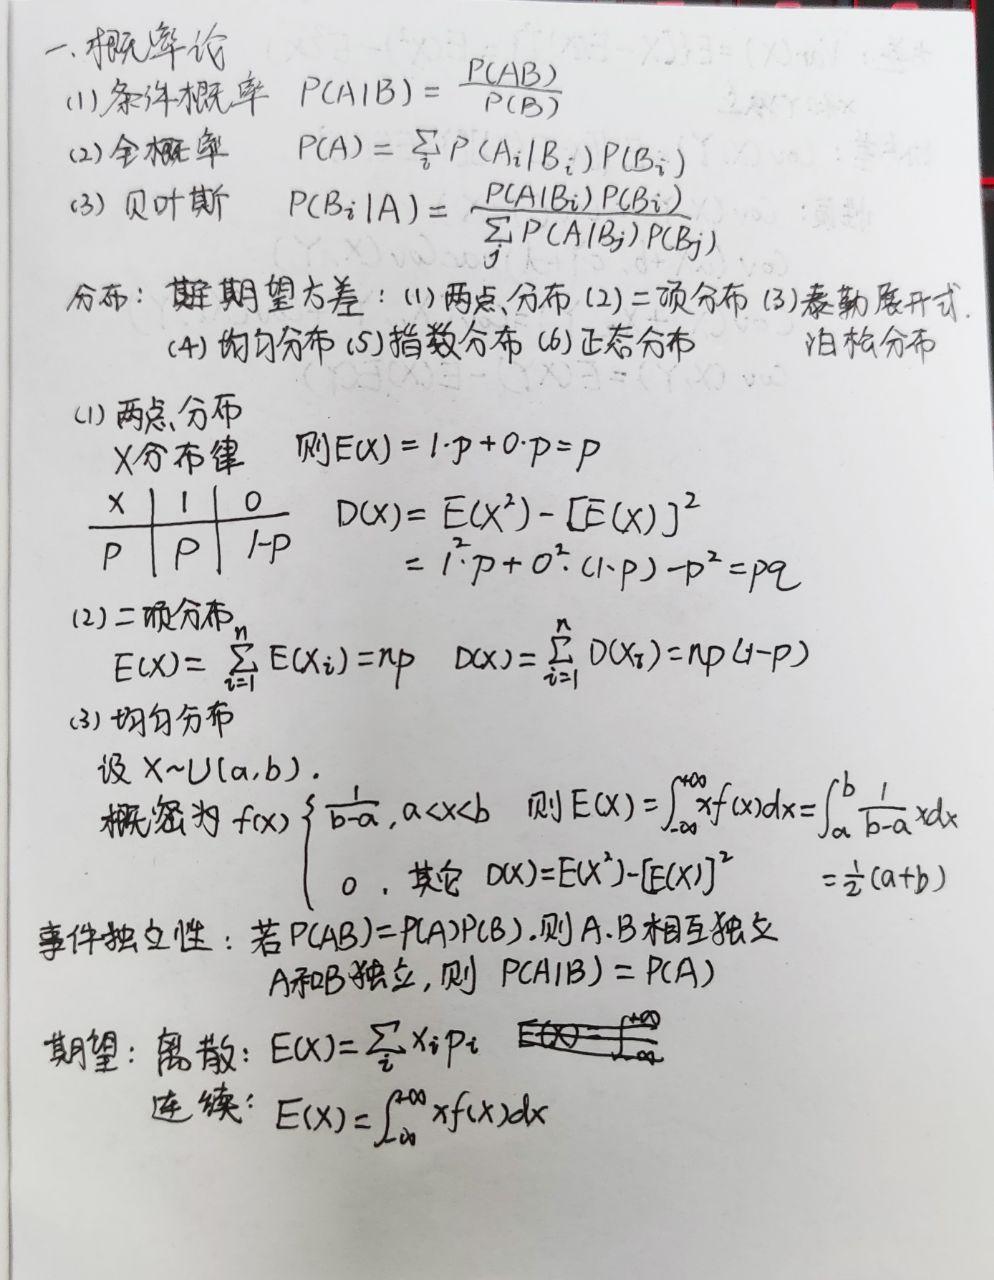 一.概率论
(1) 条件概率 P(A|B) = P(AB)/P(B)
(2) 全概率 P(A) = ∑_i P(A_i|B_i)P(B_i)
(3) 贝叶斯 P(B_i|A) = P(A|B_i)P(B_i) / ∑_j P(A|B_j)P(B_j)
分布: 期望方差: (1) 两点分布 (2) 二项分布 (3) 泰勒展开式.
(4) 均匀分布 (5) 指数分布 (6) 正态分布 泊松分布
(1) 两点分布
X分布律 则E(X) = 1·p+0·p = p
X | 1 | 0
P | P | 1-p
D(X) = E(X²) - [E(X)]²
= 1²·p + 0²·(1-p) - p² = pq
(2) 二项分布
E(X) = ∑_{i=1}^{n} E(X_i) = np D(X) = ∑_{i=1}^{n} D(X_i) = np(1-p)
(3) 均匀分布
设 X~U(a,b).
概密为 f(x) { 1/(b-a), a<x<b 则 E(X) = ∫_{-∞}^{+∞} xf(x)dx = ∫_a^b 1/(b-a) xdx
0, 其它 D(X)=E(X²)-[E(X)]² = ½(a+b)
事件独立性: 若P(AB)=P(A)P(B).则A.B相互独立
A和B独立,则 P(A|B) = P(A)
期望: 离散: E(X)=∑_i x_i p_i
连续: E(X)=∫_{-∞}^{+∞} xf(x)dx